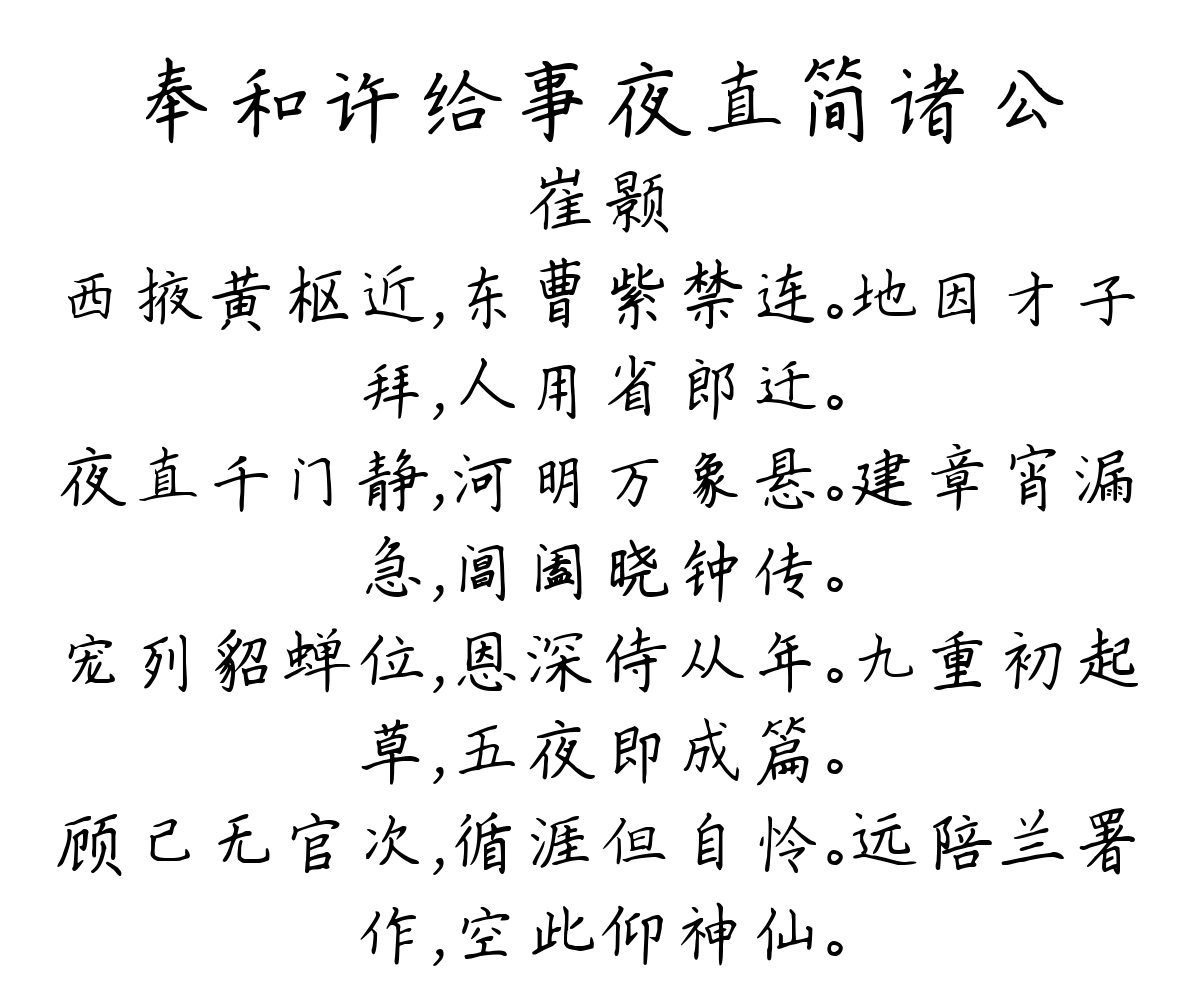 奉和许给事夜直简诸公
崔颢
西掖黄枢近,东曹紫禁连。地因才子
拜,人用省郎迁。
夜直千门静,河明万象悬。建章宵漏
急,阊阖晓钟传。
宠列貂蝉位,恩深侍从年。九重初起
草,五夜即成篇。
顾己无官次,循涯但自怜。远陪兰署
作,空此仰神仙。